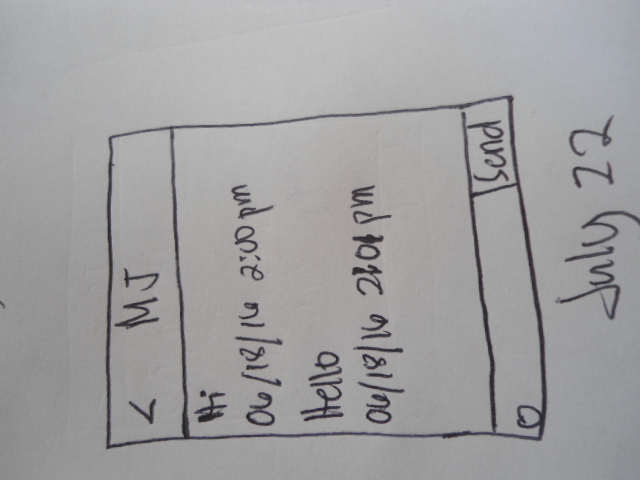 < MJ
Hi
06/18/16 2:00 pm
Hello
06/18/16 2:01 pm
Send
July 22